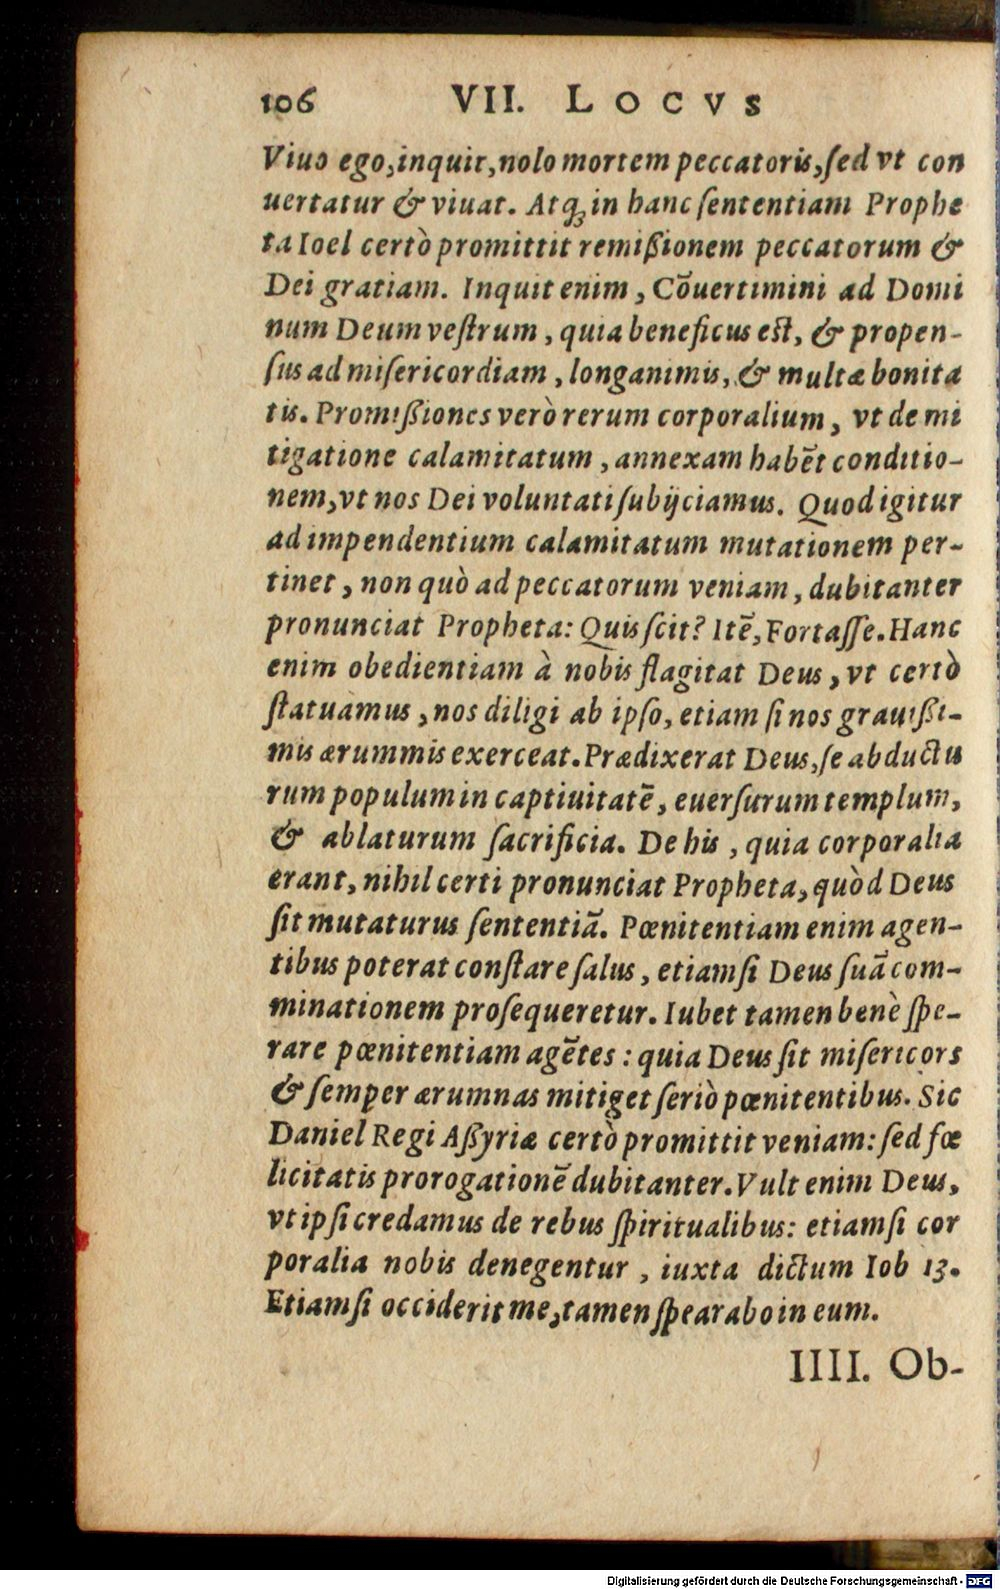 106 VII. LOCVS
Viuo ego, inquit, nolo mortem peccatoris, ſed vt con
uertatur & viuat. Atq́; in hanc ſententiam Prophe
ta Ioel certò promittit remiſſionem peccatorum &
Dei gratiam. Inquit enim, Cōuertimini ad Domi
num Deum veſtrum, quia beneficus eſt, & propen-
ſus ad miſericordiam, longanimis, & multæ bonita
tis. Promiſſiones verò rerum corporalium, vt de mi
tigatione calamitatum, annexam habēt conditio-
nem, vt nos Dei voluntati ſubijciamus. Quod igitur
ad impendentium calamitatum mutationem per-
tinet, non quò ad peccatorum veniam, dubitanter
pronunciat Propheta: Quis ſcit? Itē, Fortaſſe. Hanc
enim obedientiam à nobis flagitat Deus, vt certò
ſtatuamus, nos diligi ab ipſo, etiam ſi nos grauiſſi-
mis ærummis exerceat. Prædixerat Deus, ſe abductu
rum populum in captiuitatē, euerſurum templum,
& ablaturum ſacrificia. De his, quia corporalia
erant, nihil certi pronunciat Propheta, quòd Deus
ſit mutaturus ſententiā. Pœnitentiam enim agen-
tibus poterat conſtare ſalus, etiamſi Deus ſuā com-
minationem proſequeretur. Iubet tamen benè ſpe-
rare pœnitentiam agētes: quia Deus ſit miſericors
& ſemper ærumnas mitiget ſeriò pœnitentibus. Sic
Daniel Regi Aſſyriæ certò promittit veniam: ſed fœ
licitatis prorogationē dubitanter. Vult enim Deus,
vt ipſi credamus de rebus ſpiritualibus: etiamſi cor
poralia nobis denegentur, iuxta dictum Iob 13.
Etiamſi occiderit me, tamen ſpearabo in eum.
IIII. Ob-
Digitalisierung gefördert durch die Deutsche Forschungsgemeinschaft - DFG